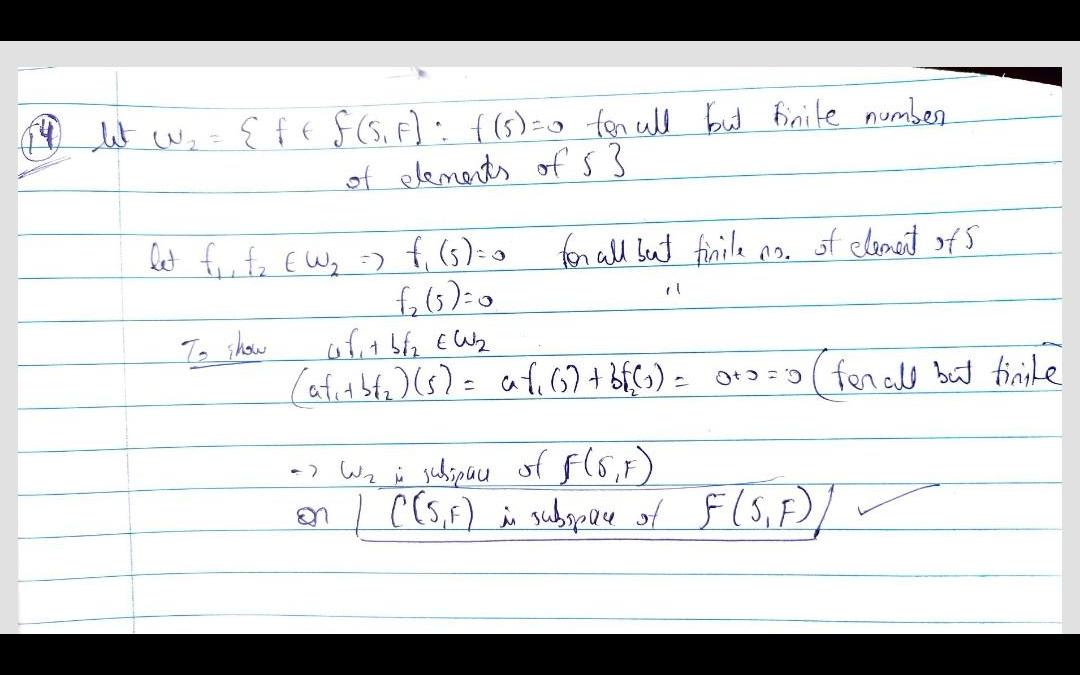 14 let W₂ = { f ∈ F(S,F) : f(s)=0 for all but finite number
of elements of S }
let f₁, f₂ ∈ W₂ => f₁(s)=0 for all but finite no. of element of S
f₂(s)=0 "
To show af₁ + bf₂ ∈ W₂
(af₁+bf₂)(s) = af₁(s) + bf₂(s) = 0+0=0 (for all but finite
=> W₂ is subspace of F(S,F)
or C(S,F) is subspace of F(S,F) ✓